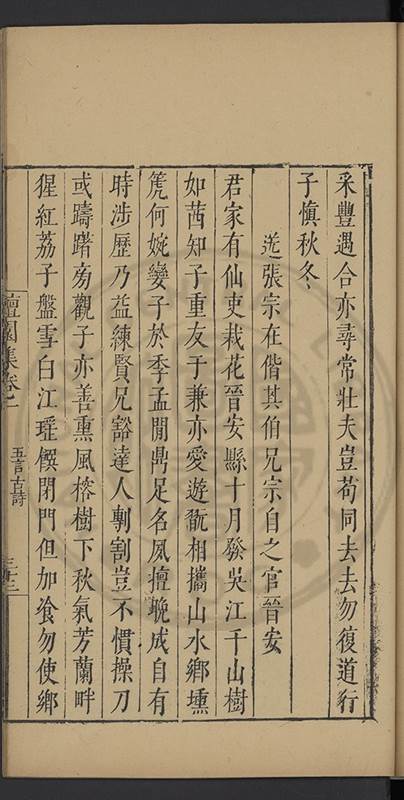 采豐遇合亦尋常壯夫豈苟同去去勿復道行
子愼秋冬
送張宗在偕其伯兄宗自之官晉安
君家有仙吏栽花晉安縣十月發吳江千山樹
如茜知子重友于兼亦愛遊翫相攜山水鄉壎
篪何婉孌子於季孟閒鼎足名夙擅晚成自有
時涉歷乃益練賢兄豁達人剸割豈不慣操刀
或躊躇旁觀子亦善熏風榕樹下秋氣芳蘭畔
猩紅荔子盤雪白江瑶饌閉門但加飡勿使鄉
檀園集卷一
五言古詩